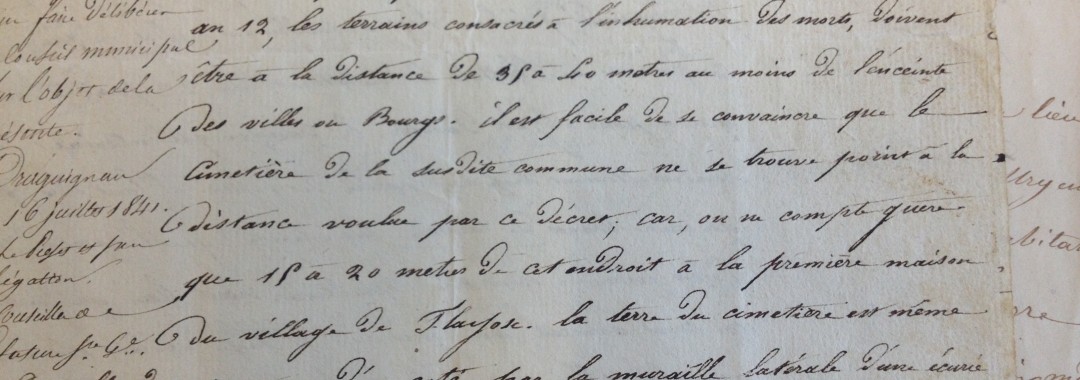 faire Délibérer
Conseil municipal
l'objet de la
Draguignan
16 juillet 1841.
Le Préfet
Conseille de
an 12, les terrains consacrés à l'inhumation des morts, doivent
être à la distance de 35 à 40 metres au moins de l'enceinte
des villes ou Bourgs. il est facile de se convaincre que le
Cimetière de la susdite commune ne se trouve point à la
distance voulue par ce décret; car, on ne compte guère
que 15 à 20 metres de cet endroit à la première maison
du village de Flayosc. la terre du cimetière est même
par la muraille latérale d'une écurie
lieu